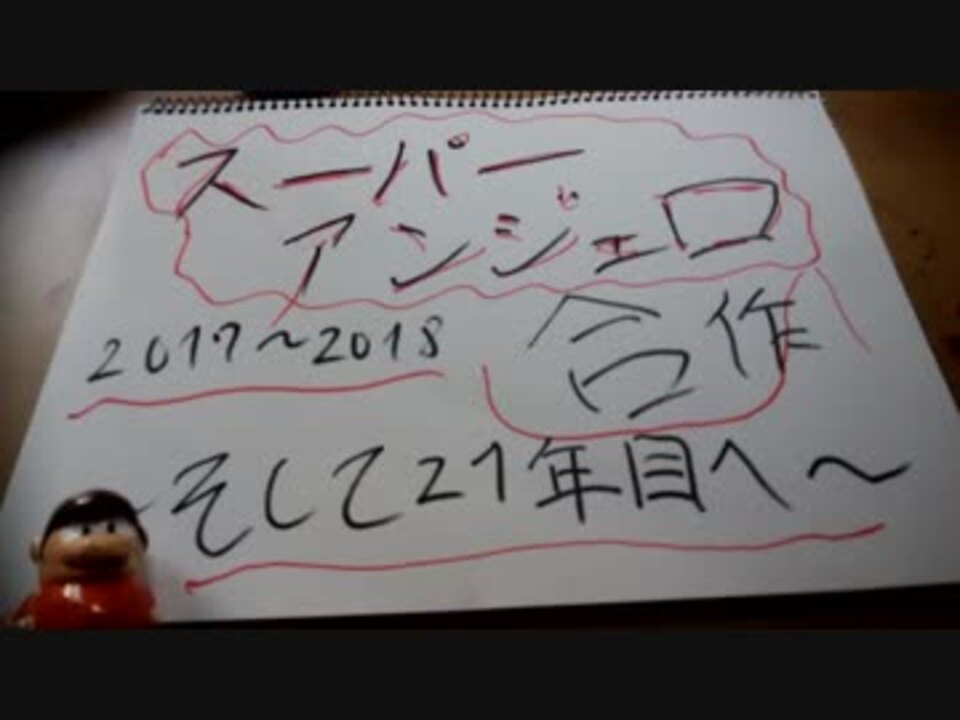 スーパー
アンジェロ
合作
2017～2018
～そして21年目へ～